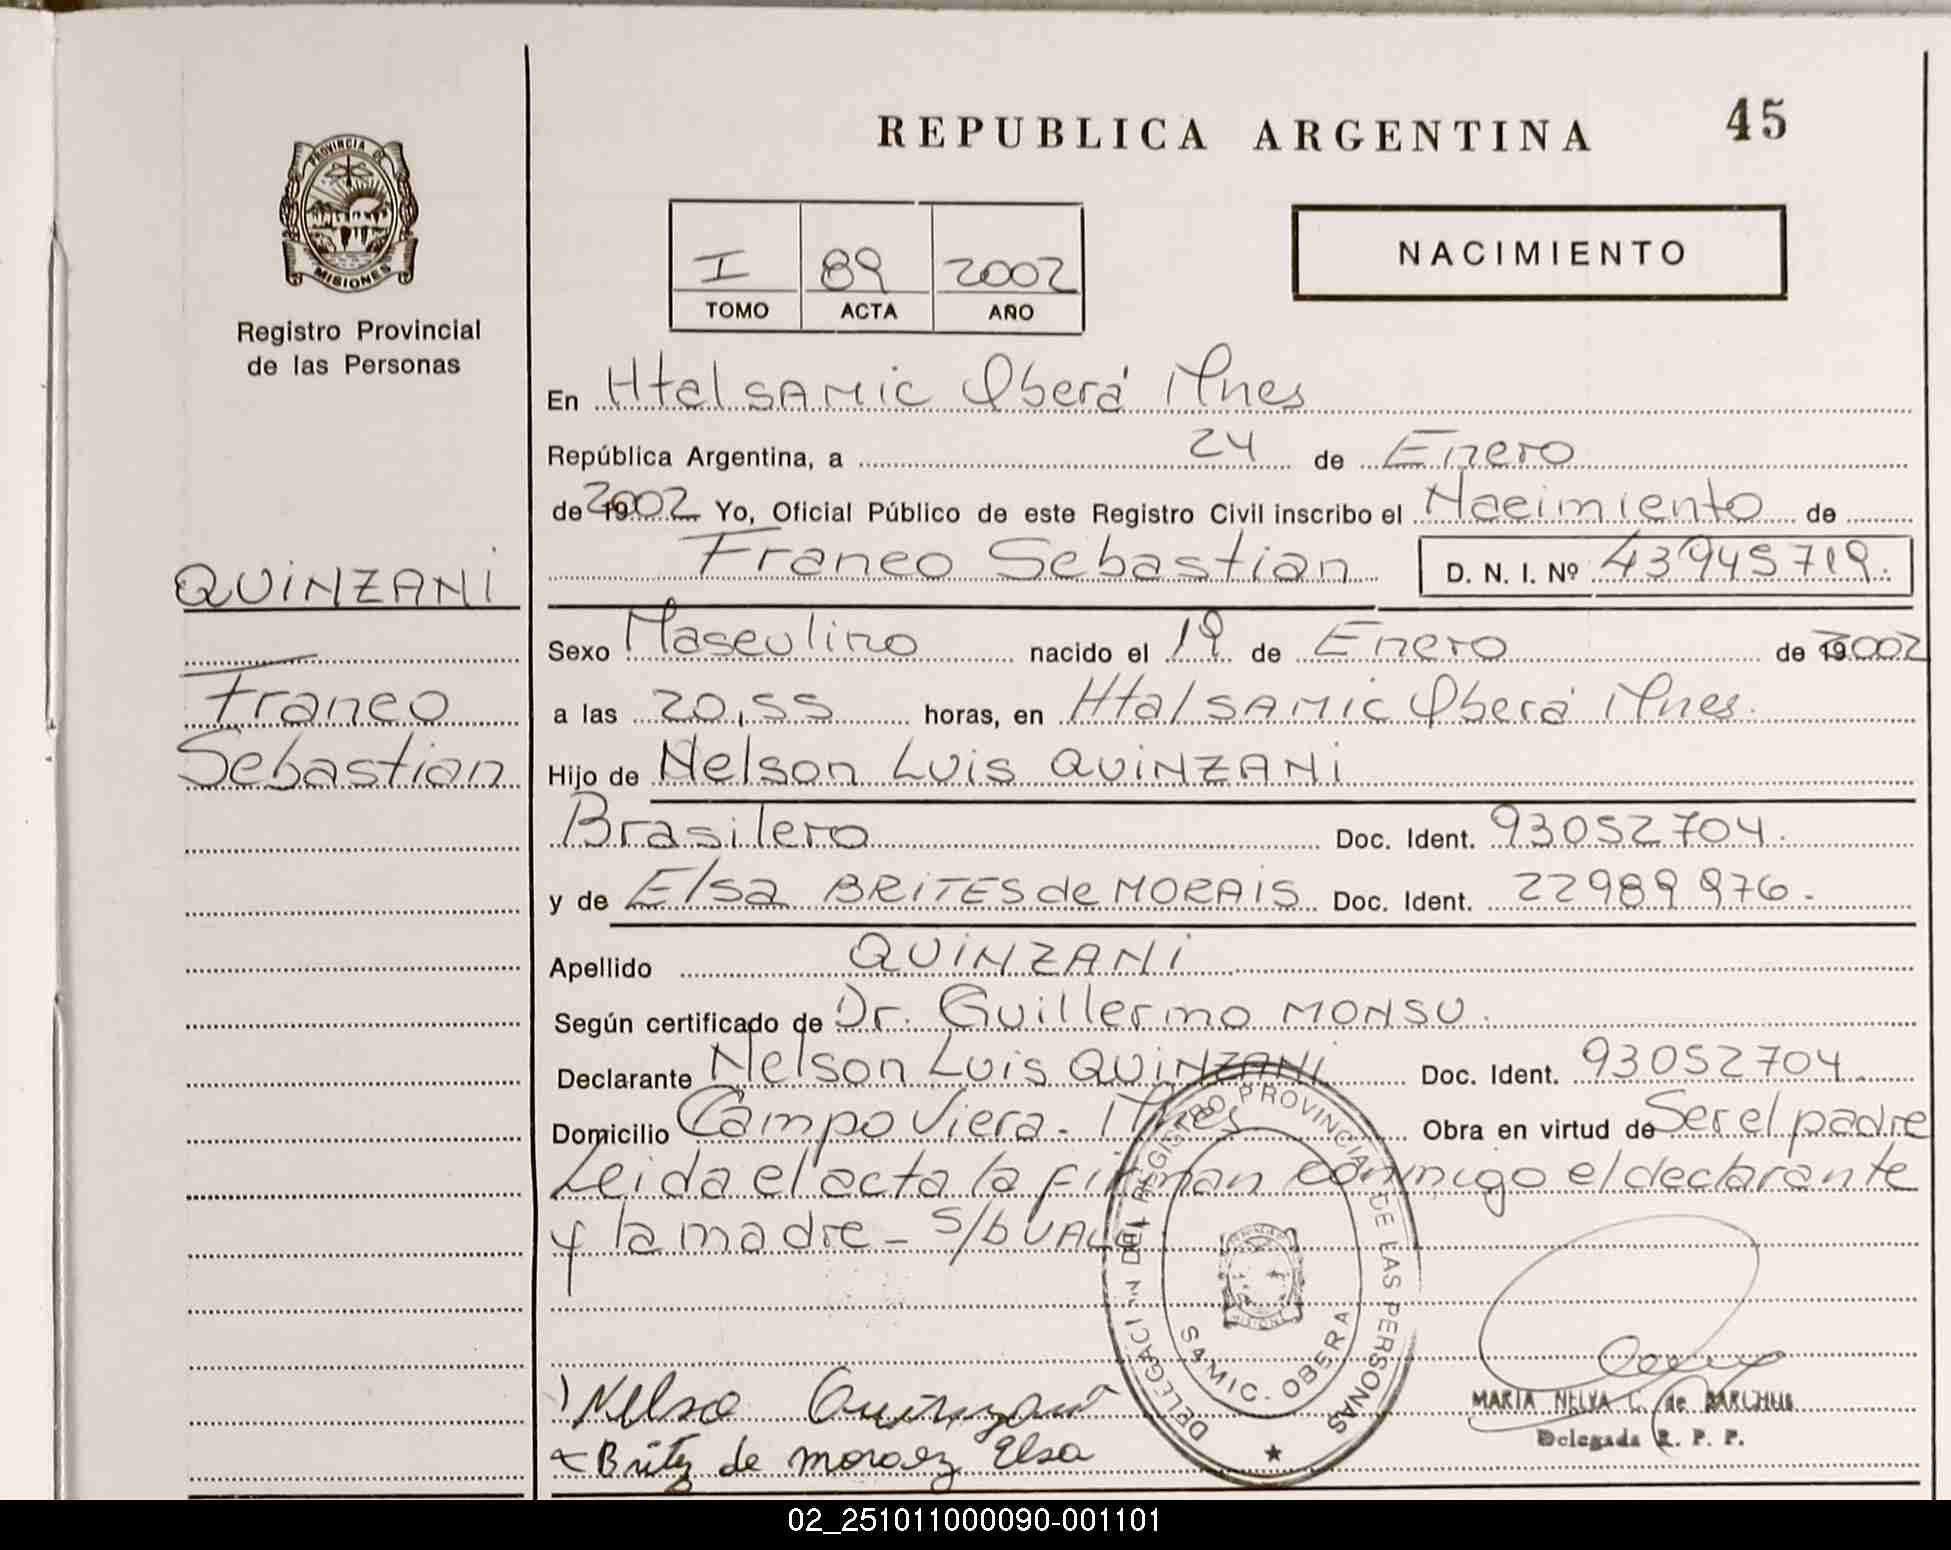 REPUBLICA ARGENTINA
45
PROVINCIA DE
MISIONES
Registro Provincial
de las Personas
I 89 2002
TOMO ACTA AÑO
NACIMIENTO
En Htal SAMic Oberá Mnes
República Argentina, a 24 de Enero
de 2002 Yo, Oficial Público de este Registro Civil inscribo el Nacimiento de
Franco Sebastian D. N. I. Nº 43945719.
QUiNZANi
Franco
Sebastian
Sexo Masculino nacido el 19 de Enero de 2002
a las 20,55 horas, en Htal SAMic Oberá Mnes.
Hijo de Nelson Luis QUiNZANi
Brasilero Doc. Ident. 93052704.
y de Elsa BRiTES de MORAiS Doc. Ident. 22989976.
Apellido QUiNZANi
Según certificado de Dr. Guillermo MONSU.
Declarante Nelson Luis QUiNZANi Doc. Ident. 93052704.
Domicilio Campo Viera. Mnes Obra en virtud de Ser el padre
Leida el acta la firman conmigo el declarante
y la madre _ S/b
DELEGACI N DEL REGISTRO PROVINCIAL DE LAS PERSONAS
SAMIC. OBERA
MISIONES
Nelso Quinzani
Britz de moraez Elsa
MARIA NELVA C. de
Delegada R. P. P.
02_251011000090-001101